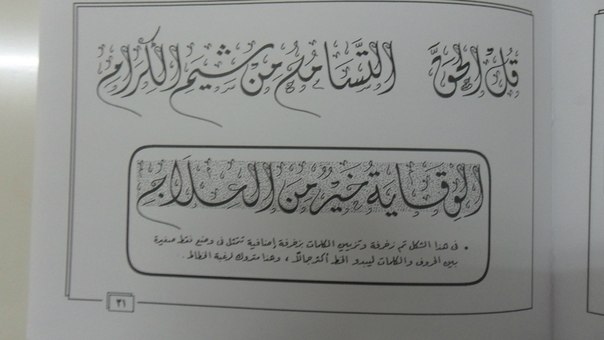 قُلْ الحَقَّ التَّسَامُحُ مِنْ شِيَمِ الكِرَامِ
الوِقَايَةُ خَيْرٌ مِنَ العِلَاجِ
• فى هذا الشكل تم زخرفة وتزيين الكلمات بزخرفة إضافية تتمثل فى وضع نقط صغيرة
بين الحروف والكلمات ليبدو الخط أكثر جمالاً ، وهذا متروك لرغبة الخطاط .
٣١